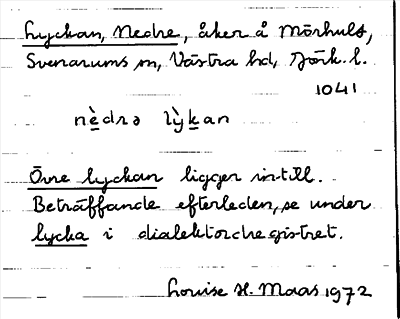 Lyckan, Nedre, åker å Mörhult,
Svenarums sn, Västra hd, Jönk. l.
1041
nèdrə lỳkan
Övre lyckan ligger intill.
Beträffande efterleden, se under
lycka i dialektordregistret.
Louise H. Maas 1972